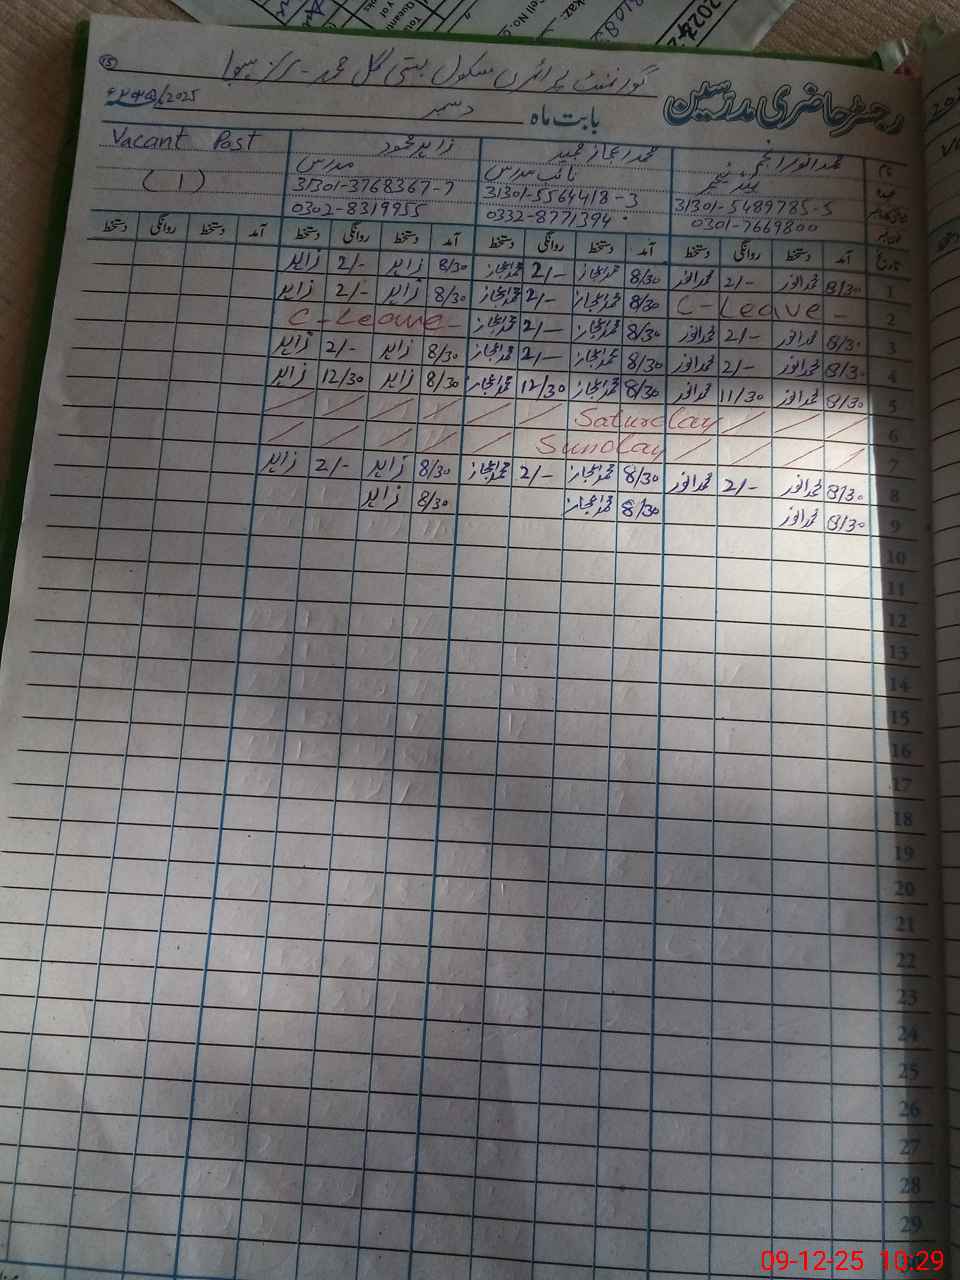 گورنمنٹ پرائمری سکول بستی گل محمد - مرکز
15
رجسٹر حاضری مدرسین
بابت ماہ دسمبر 2025
نام محمد انور انجم محمد اعجاز حمید زاہد محمود Vacant Post
عہدہ ہیڈ ٹیچر نائب مدرس مدرس ( 1 )
31301-5489785-5 31301-5564418-3 31301-3768367-7
0301-7669800 0332-8771394 0302-8319955
تاریخ آمد دستخط روانگی دستخط آمد دستخط روانگی دستخط آمد دستخط روانگی دستخط آمد دستخط روانگی دستخط
1 8/30 محمد انور 2/- محمد انور 8/30 محمد اعجاز 2/- محمد اعجاز 8/30 زاہد 2/- زاہد
2 C-Leave - 8/30 محمد اعجاز 2/- محمد اعجاز 8/30 زاہد 2/- زاہد
3 8/30 محمد انور 2/- محمد انور 8/30 محمد اعجاز 2/- محمد اعجاز C-Leave -
4 8/30 محمد انور 2/- محمد انور 8/30 محمد اعجاز 2/- محمد اعجاز 8/30 زاہد 2/- زاہد
5 8/30 محمد انور 11/30 محمد انور 8/30 محمد اعجاز 12/30 محمد اعجاز 8/30 زاہد 12/30 زاہد
6 / / / / Saturday / / / / / /
7 / / / / Sunday / / / / / /
8 8/30 محمد انور 2/- محمد انور 8/30 محمد اعجاز 2/- محمد اعجاز 8/30 زاہد 2/- زاہد
9 8/30 محمد انور 8/30 محمد اعجاز 8/30 زاہد
10
11
12
13
14
15
16
17
18
19
20
21
22
23
24
25
26
27
28
29
09-12-25 10:29